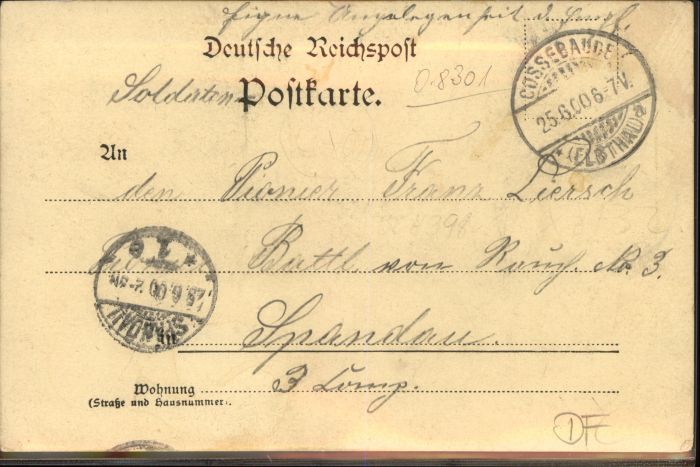 Eigne Angelegenheit d. Empf.
Deutsche Reichspost
Soldaten Postkarte.
0.8301
COSSEBAUDE
25.6.00.6-7V.
* (ELBTHAL) a
An
den Pionier Franz Liersch
4398
Battl von Rauch. No 3.
SPANDAU
25.6.00
* 1 e
in Spandau.
Wohnung 3 Comp.
(Straße und Hausnummer).
DFC